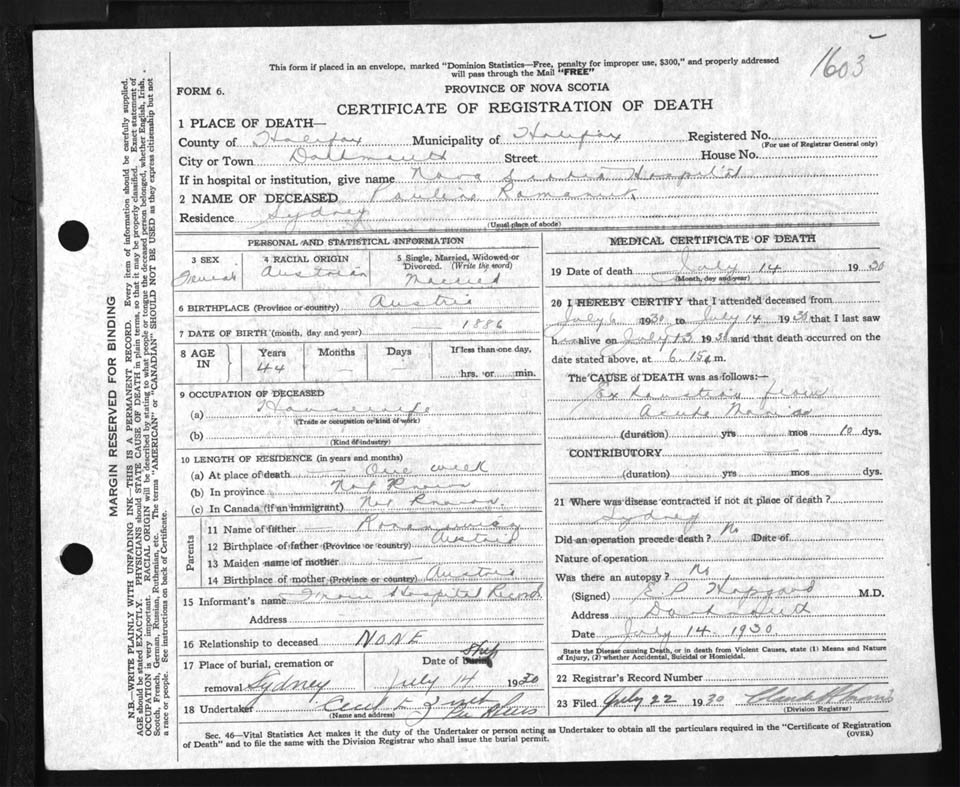 1603
This form if placed in an envelope, marked "Dominion Statistics—Free, penalty for improper use, $300," and properly addressed
will pass through the Mail "FREE"
FORM 6.
PROVINCE OF NOVA SCOTIA
CERTIFICATE OF REGISTRATION OF DEATH
1 PLACE OF DEATH—
County of Halifax Municipality of Halifax Registered No.
(For use of Registrar General only)
City or Town Dartmouth Street House No.
If in hospital or institution, give name Nova Scotia Hospital
2 NAME OF DECEASED
Residence Sydney
(Usual place of abode)
PERSONAL AND STATISTICAL INFORMATION
3 SEX 4 RACIAL ORIGIN 5 Single, Married, Widowed or
Divorced. (Write the word)
Female Austrian Married
6 BIRTHPLACE (Province or country) Austria
7 DATE OF BIRTH (month, day and year) 1886
8 AGE IN Years Months Days If less than one day,
44 — — hrs. or min.
9 OCCUPATION OF DECEASED
(a) Housewife
(Trade or occupation or kind of work)
(b)
(Kind of industry)
10 LENGTH OF RESIDENCE (in years and months)
(a) At place of death — One week
(b) In province Not Known
(c) In Canada (if an immigrant) Not Known
Parents
11 Name of father
12 Birthplace of father (Province or country) Austria
13 Maiden name of mother —
14 Birthplace of mother (Province or country) Austria
15 Informant's name From Hospital Records
Address
16 Relationship to deceased NONE
17 Place of burial, cremation or Date of burial Ship
removal Sydney July 14 1930
18 Undertaker
(Name and address)
MEDICAL CERTIFICATE OF DEATH
19 Date of death July 14 1930
(Month, day and year)
20 I HEREBY CERTIFY that I attended deceased from
July 6 1930 to July 14 1930 that I last saw
h alive on July 13 1930 and that death occurred on the
date stated above, at 6.15 a m.
The CAUSE of DEATH was as follows:—
Exhaustion from
Acute Mania
(duration) yrs mos 10 dys.
CONTRIBUTORY —
(duration) yrs mos dys.
21 Where was disease contracted if not at place of death?
Sydney
Did an operation precede death? No Date of
Nature of operation
Was there an autopsy? No
(Signed) E P M.D.
Address Dartmouth
Date July 14 1930
State the Disease causing Death, or in death from Violent Causes, state (1) Means and Nature
of Injury, (2) whether Accidental, Suicidal or Homicidal.
22 Registrar's Record Number
23 Filed July 22 1930
(Division Registrar)
Sec. 46—Vital Statistics Act makes it the duty of the Undertaker or person acting as Undertaker to obtain all the particulars required in the "Certificate of Registration
of Death" and to file the same with the Division Registrar who shall issue the burial permit.
(OVER)
MARGIN RESERVED FOR BINDING
N.B.—WRITE PLAINLY WITH UNFADING INK—THIS IS A PERMANENT RECORD. Every item of information should be carefully supplied.
AGE should be stated EXACTLY. PHYSICIANS should STATE CAUSE OF DEATH in plain terms, so that it may be properly classified. Exact statement of
OCCUPATION is very important. RACIAL ORIGIN will be described by stating to what people or tongue the deceased person belonged, whether English, Irish,
Scotch, French, German, Russian, Ruthenian, etc. The terms "AMERICAN" or "CANADIAN" SHOULD NOT BE USED as they express citizenship but not
a race or people. See instructions on back of Certificate.